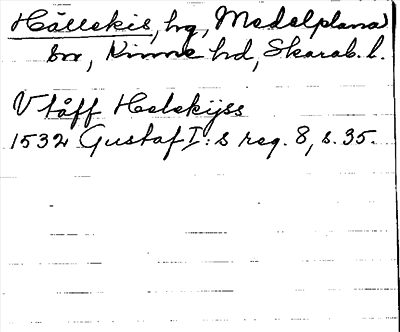 Hällekis, hg, Medelplana
sn, Kinne hd, Skarab. l.
V tåff Helekijss
1532 Gustaf I:s reg. 8, s. 35.